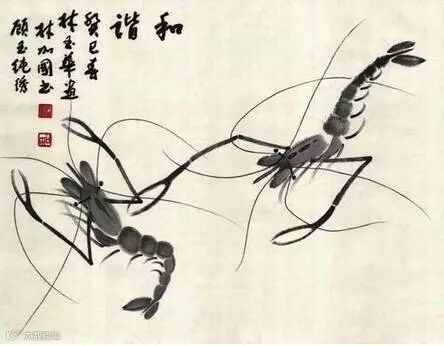 和谐
癸巳春
林玉華画
林加國书
顾玉纯绣